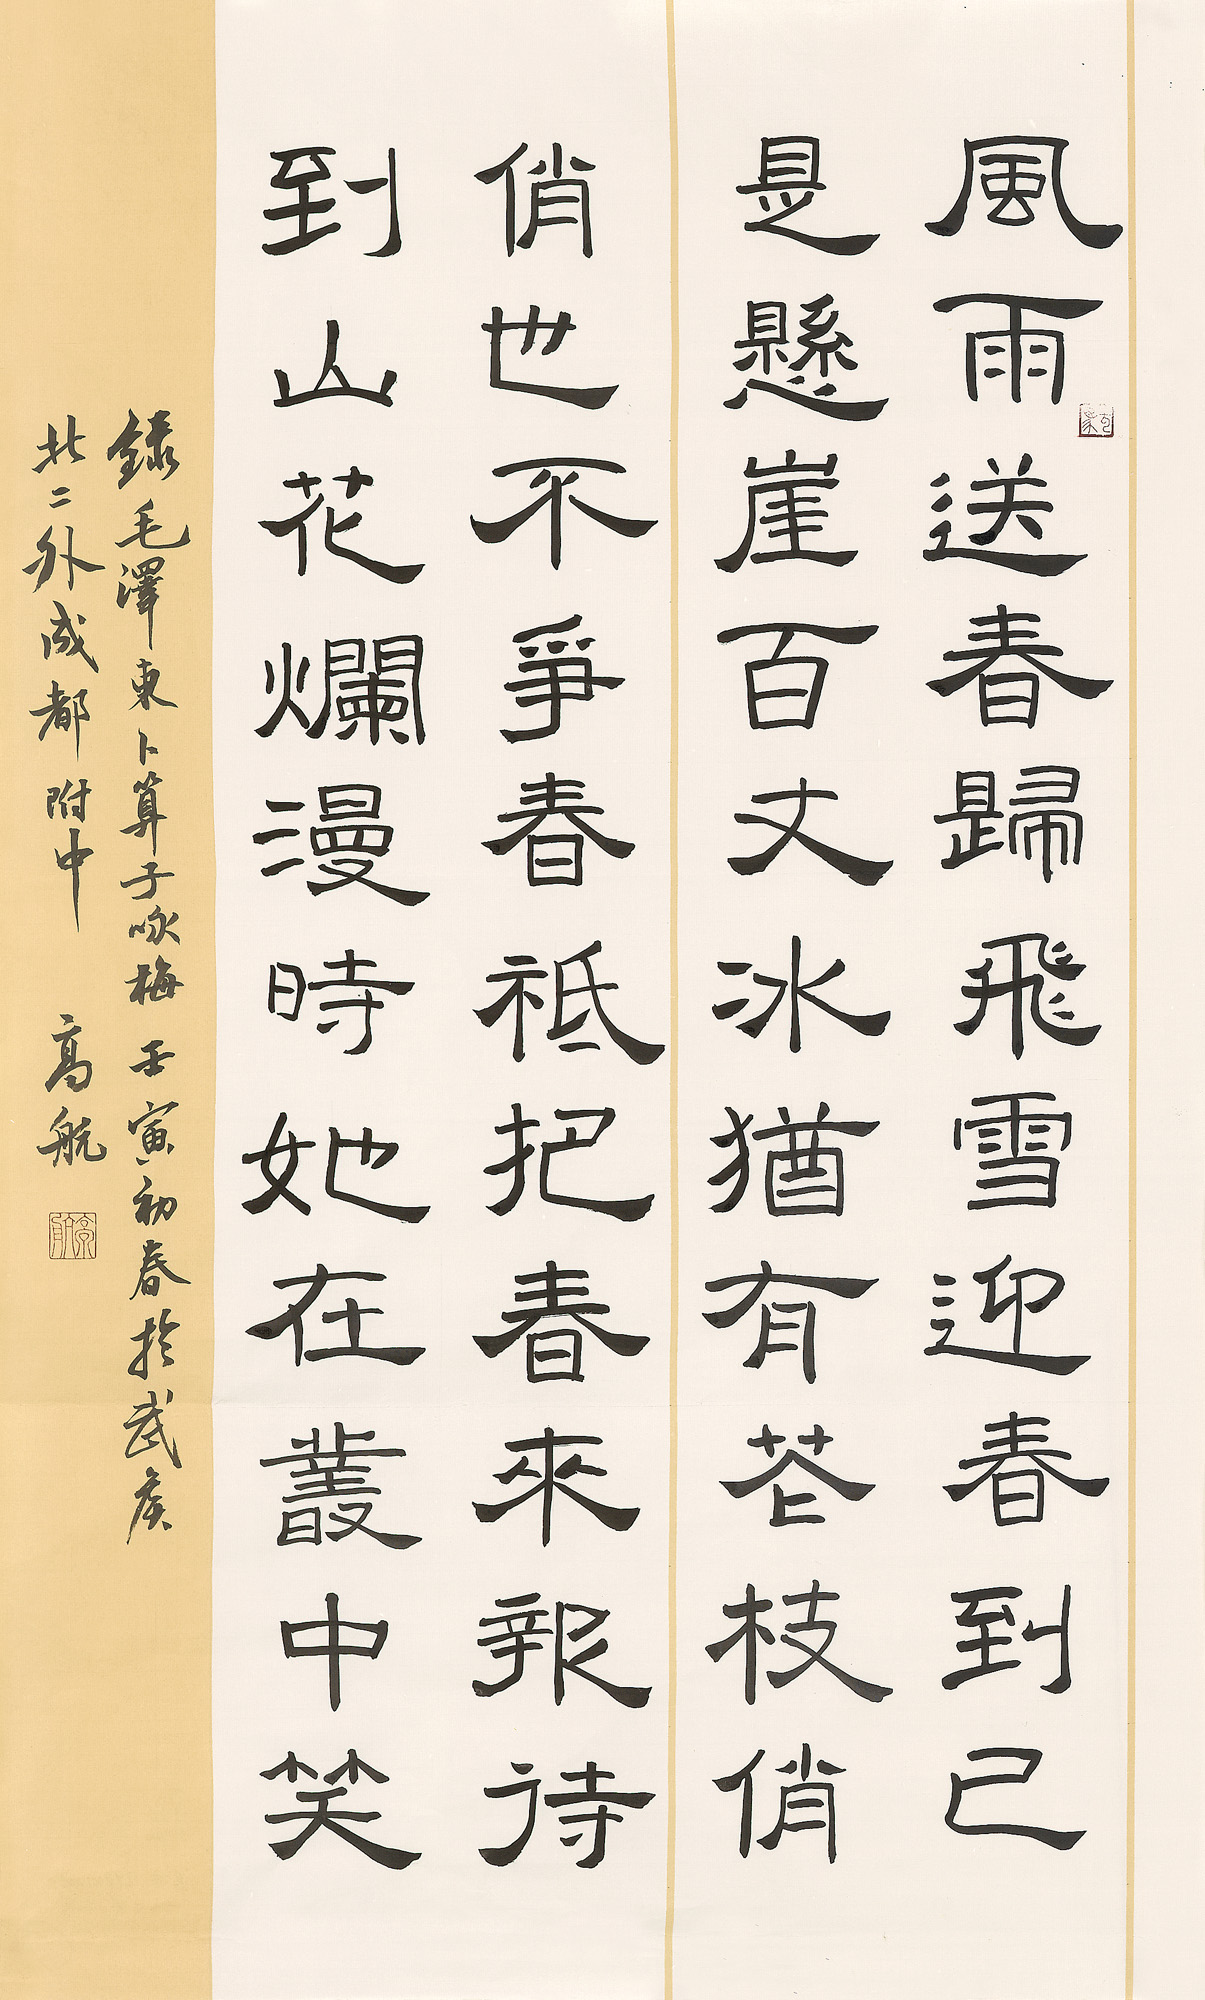 風雨送春歸飛雪迎春到已
是懸崖百丈冰猶有花枝俏
俏也不爭春祗把春來報待
到山花爛漫時她在叢中笑
錄毛澤東卜算子咏梅壬寅初春於武侯
北二外成都附中 高航